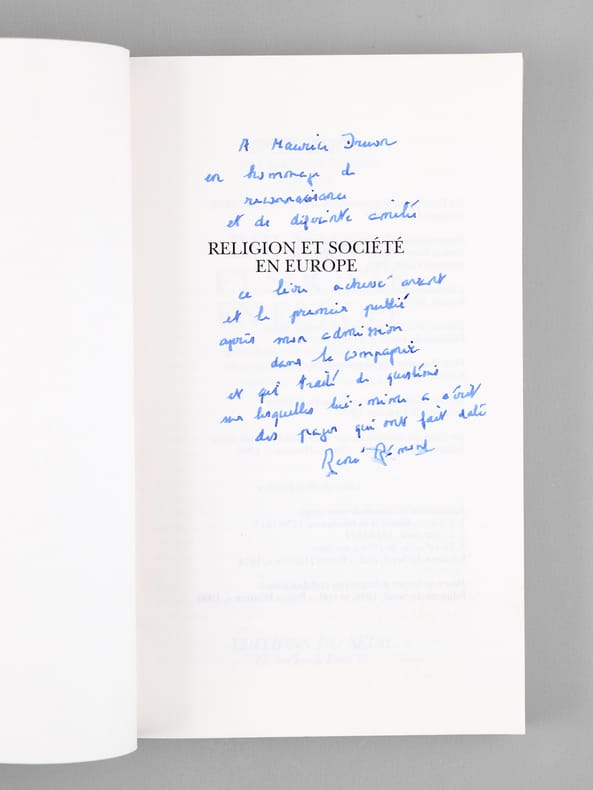 A Maurice Druon
en hommage de
reconnaissance
et de déférente amitié
RELIGION ET SOCIÉTÉ
EN EUROPE
ce livre achevé avant
et le premier publié
après mon admission
dans la compagnie
et qui traite de questions
sur lesquelles lui-même a écrit
des pages qui ont fait date
René Rémond